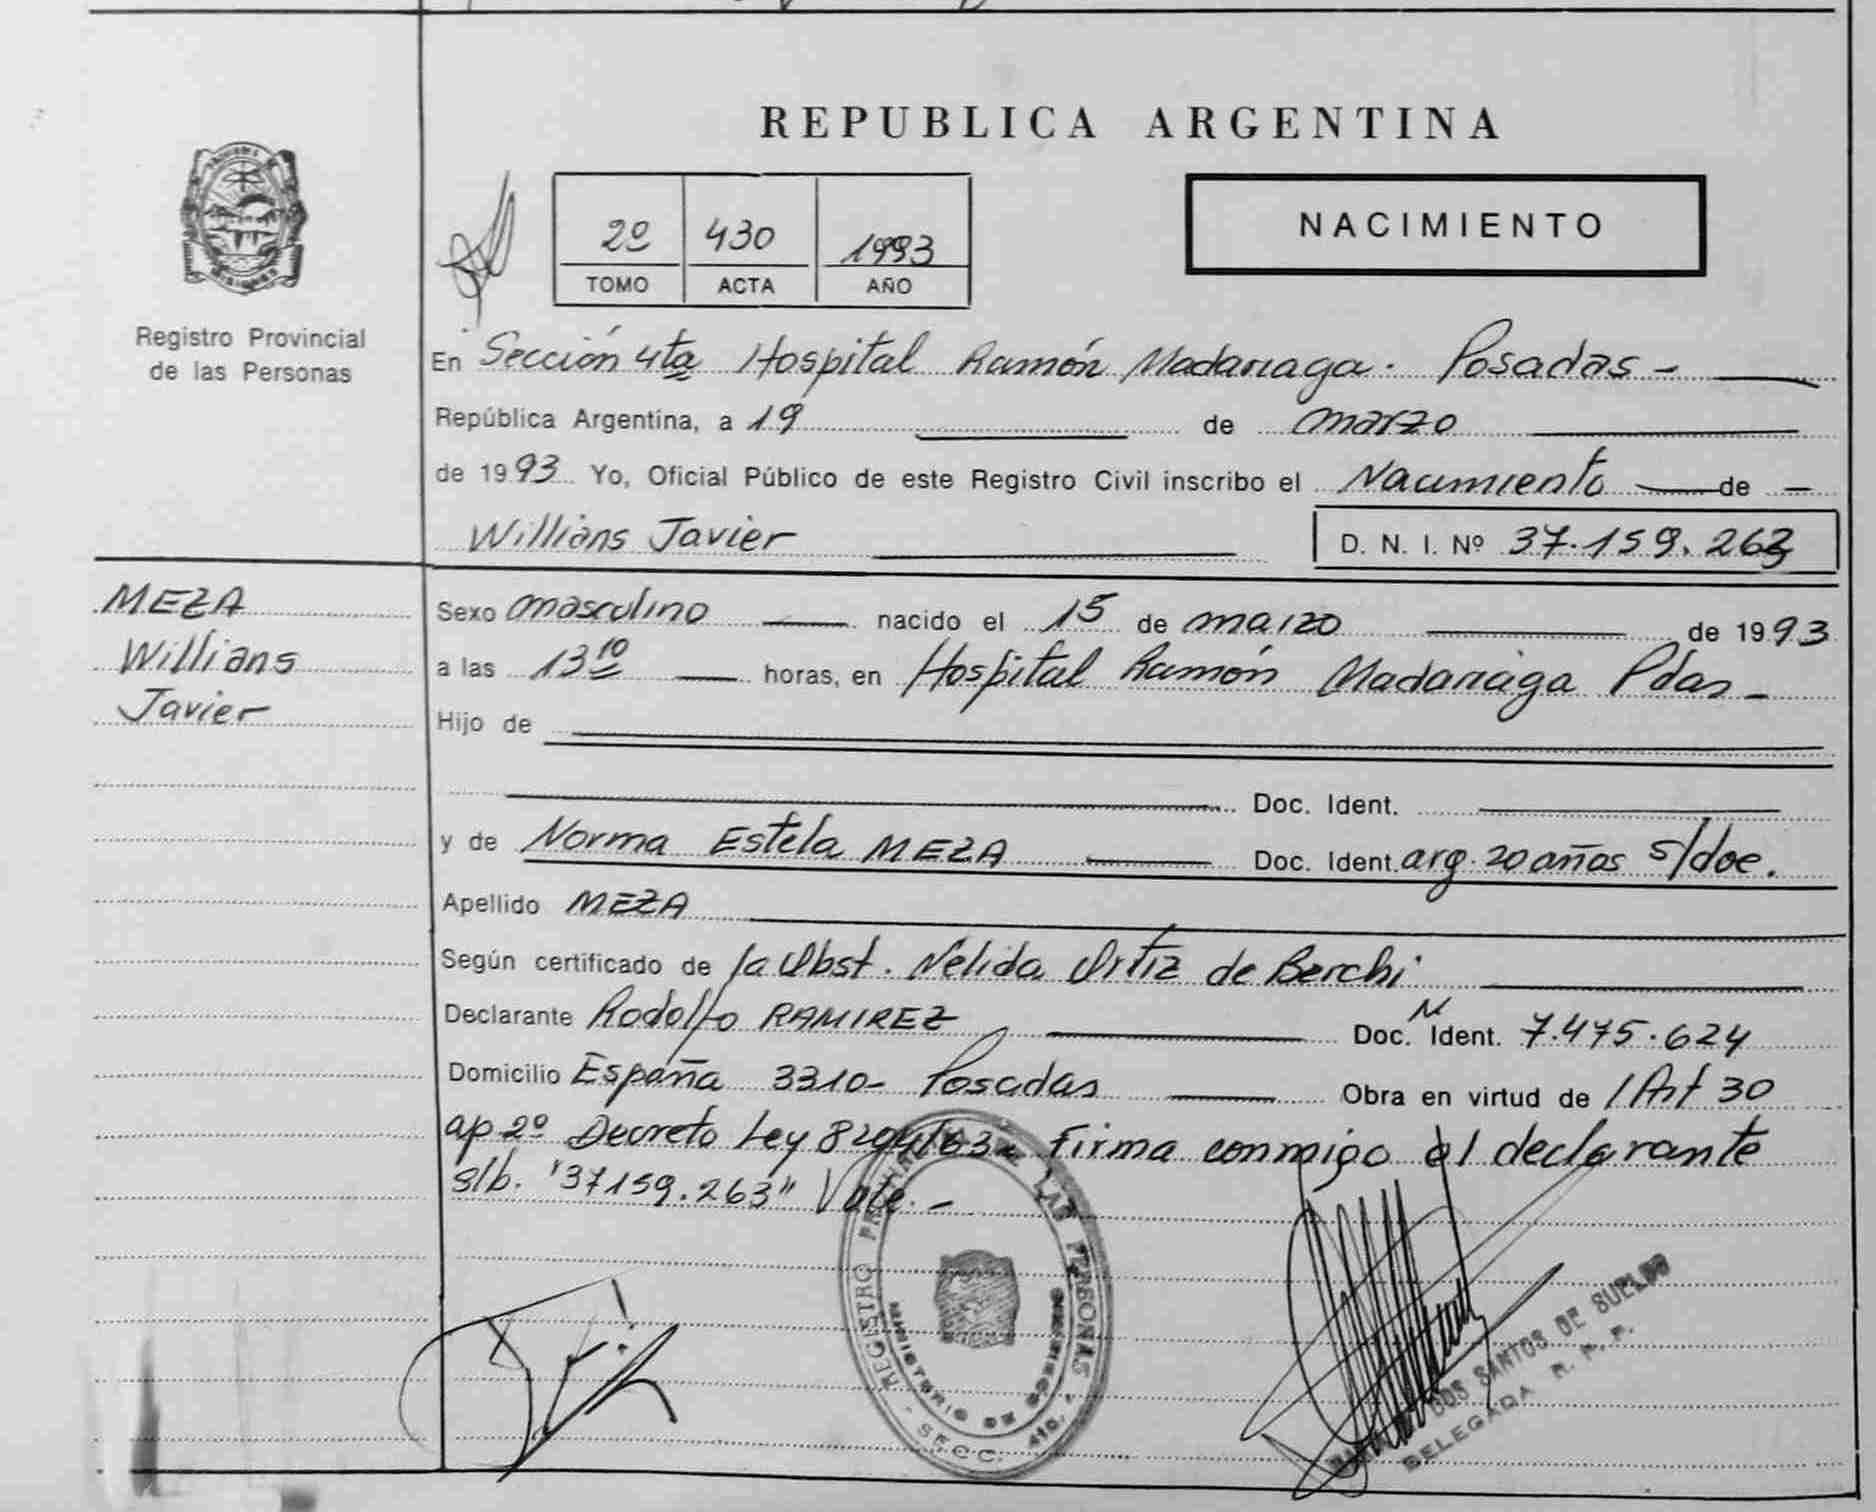 REPUBLICA ARGENTINA
2º 430 1993
TOMO ACTA AÑO
NACIMIENTO
Registro Provincial
de las Personas
En Sección 4ta Hospital Ramón Madariaga. Posadas -
República Argentina, a 19 de marzo
de 1993 Yo, Oficial Público de este Registro Civil inscribo el Nacimiento de -
Willians Javier D. N. I. Nº 37.159.263
MEZA
Willians
Javier
Sexo masculino nacido el 15 de marzo de 1993
a las 13 10 horas, en Hospital Ramón Madariaga Pdas -
Hijo de
Doc. Ident.
y de Norma Estela MEZA Doc. Ident. arg. 20 años s/doc.
Apellido MEZA
Según certificado de la Obst. Nélida Ortiz de Berchi
Declarante Rodolfo RAMIREZ Doc. M Ident. 7.475.624
Domicilio España 3310- Posadas Obra en virtud de / Art 30
ap 2º Decreto Ley 8204/63 - Firma conmigo el declarante
s/b. "37159.263" Vale. -
REGISTRO PROVINCIAL DE LAS PERSONAS
MINISTERIO DE GOBIERNO
DOS SANTOS DE SUELDO
DELEGADA R. P. P.